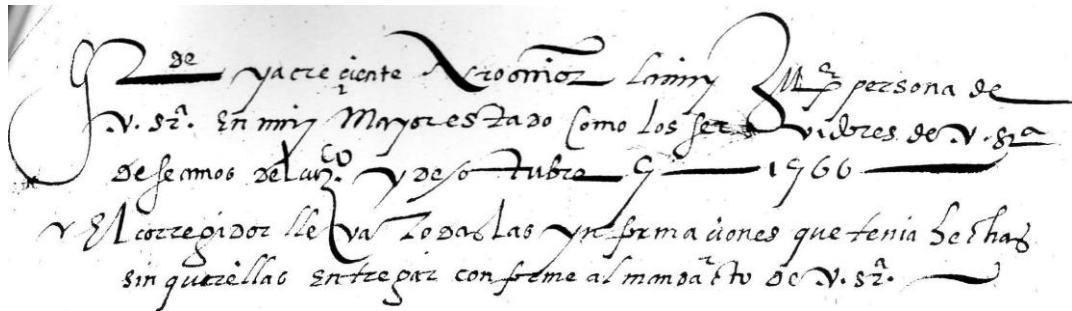 Gde y acreciente nro señor la muy persona de
V. Sª. En muy Mayor estado Como los servidores de V. Sª
deseamos del y de otubre 9 1566
y El corregidor lleva todas las ynformaciones que tenia hechas
sin querellas Entregar conforme al de V. Sª.